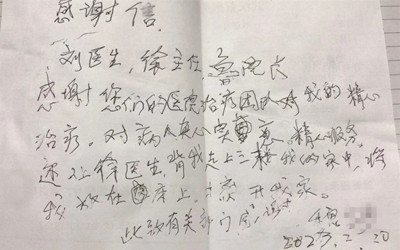 感谢信
刘医生,徐主任 鲁院长
感谢您们的医院治疗团队对我的精心
治疗,对病人真心实 竟,精心服务。
还让徐医生,背我走上三楼我们的家中,将
我放在 床上,才离开我家。
此致有关部门感谢
2023. 2. 20